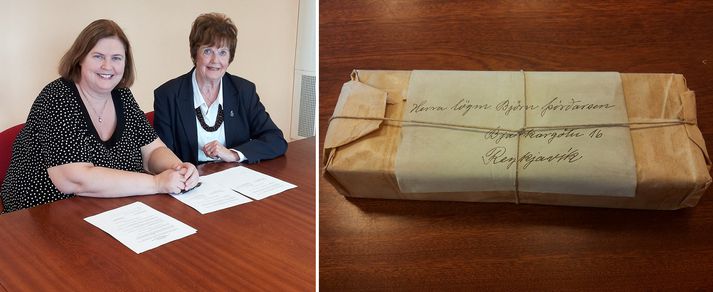 Herra lögm Björn Þórðarson
Bjarkargötu 16
Reykjavík